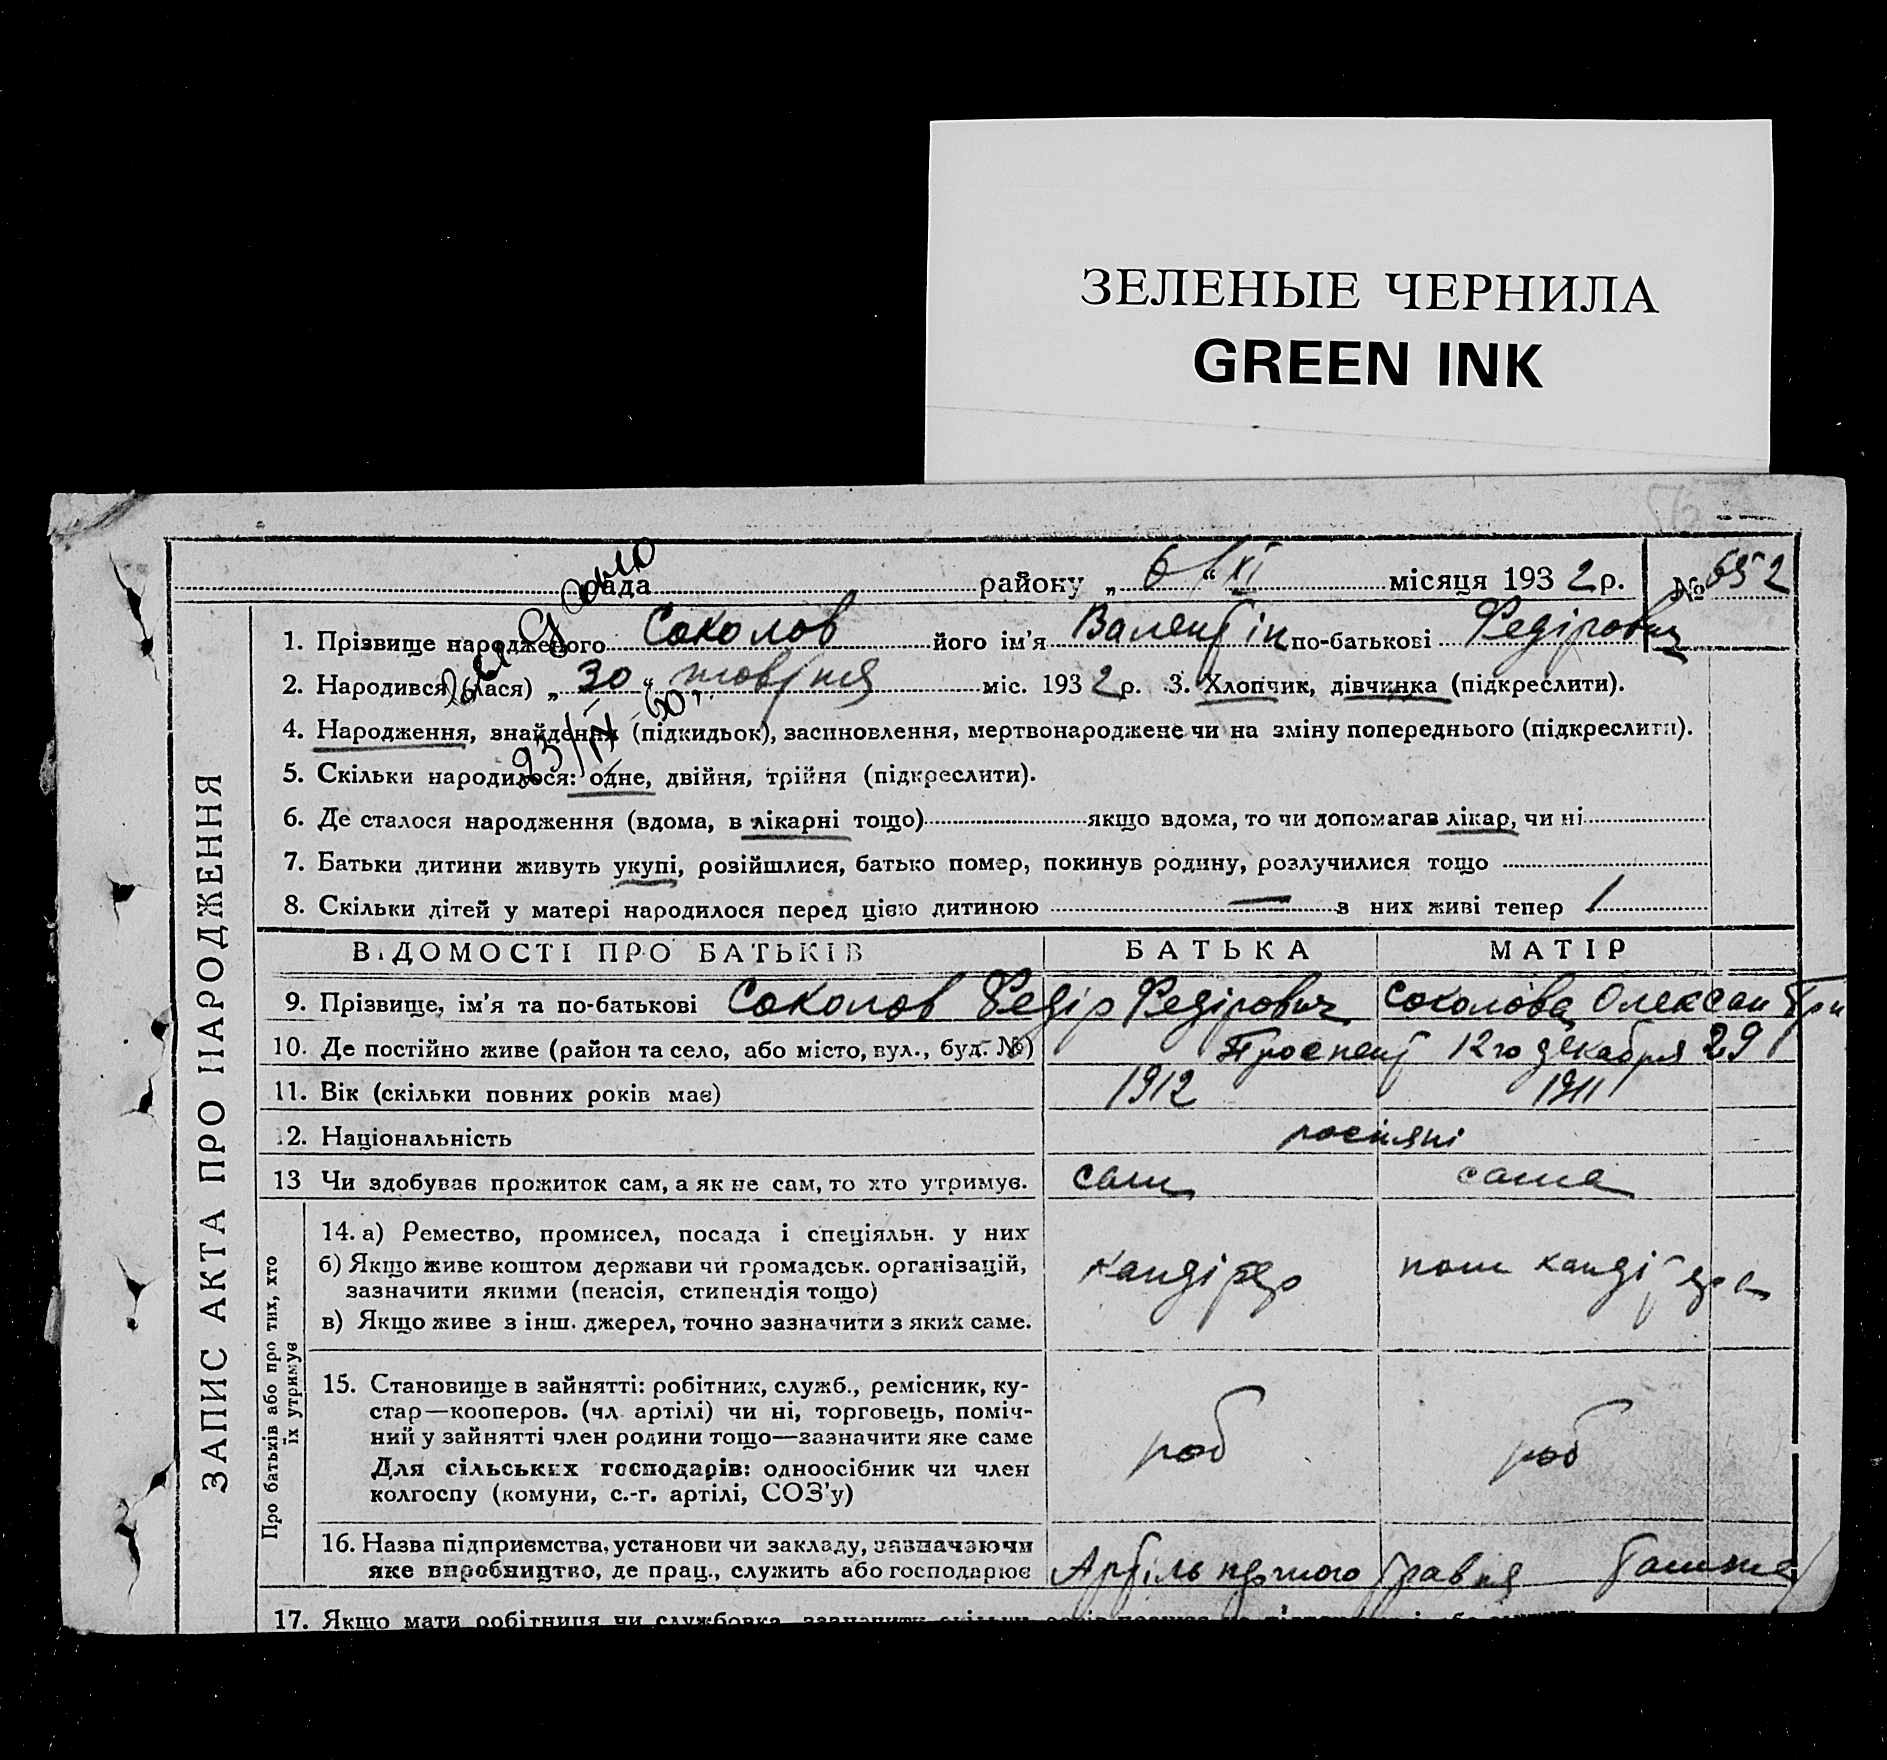 ЗЕЛЕНЫЕ ЧЕРНИЛА
GREEN INK
рада района „ 6 “ XI місяця 1932 р. № 652
ЗАПИС АКТА ПРО НАРОДЖЕННЯ
1. Прізвище народженого Соколов його ім'я Валентін по-батькові Федірович
2. Народився (лася) „ 30 “ жовтня міс. 1932 р. 3. Хлопчик, дівчинка (підкреслити).
23/IV-60 г.
4. Народження, знайдення (підкидьок), засиновлення, мертвонароджене чи на зміну попереднього (підкреслити).
5. Скільки народилося: одне, двійня, трійня (підкреслити).
6. Де сталося народження (вдома, в лікарні тощо) якщо вдома, то чи допомагав лікар, чи ні
7. Батьки дитини живуть укупі, розійшлися, батько помер, покинув родину, розлучилися тощо
8. Скільки дітей у матері народилося перед цією дитиною — з них живі тепер 1
ВІДОМОСТІ ПРО БАТЬКІВ БАТЬКА МАТІР
9. Прізвище, ім'я та по-батькові Соколов Федір Федірович Соколова Олексан Гри
10. Де постійно живе (район та село, або місто, вул., буд. №) Проспект 12го декабря 29
11. Вік (скільки повних років має) 1912 1911
12. Національність росіяни
13 Чи здобував прожиток сам, а як не сам, то хто утримує. сам сама
Про батьків або про тих, хто
їх утримує
14. а) Ремество, промисел, посада і спеціяльн. у них
б) Якщо живе коштом держави чи громадськ. організацій,
зазначити якими (пенсія, стипендія тощо)
в) Якщо живе з інш. джерел, точно зазначити з яких саме.
кандітер пом кандітера
15. Становище в зайнятті: робітник, служб., ремісник, ку-
стар—кооперов. (чл. артілі) чи ні, торговець, поміч-
ний у зайнятті член родини тощо—зазначити яке саме
Для сільських господарів: одноосібник чи член
колгоспу (комуни, с.-г. артілі, СОЗ'у)
роб роб
16. Назва підприємства, установи чи закладу, зазначаючи
яке виробництво, де прац., служить або господарює
Артіль першого травня
17. Якщо мати робітниця чи службовка, зазначити скільки